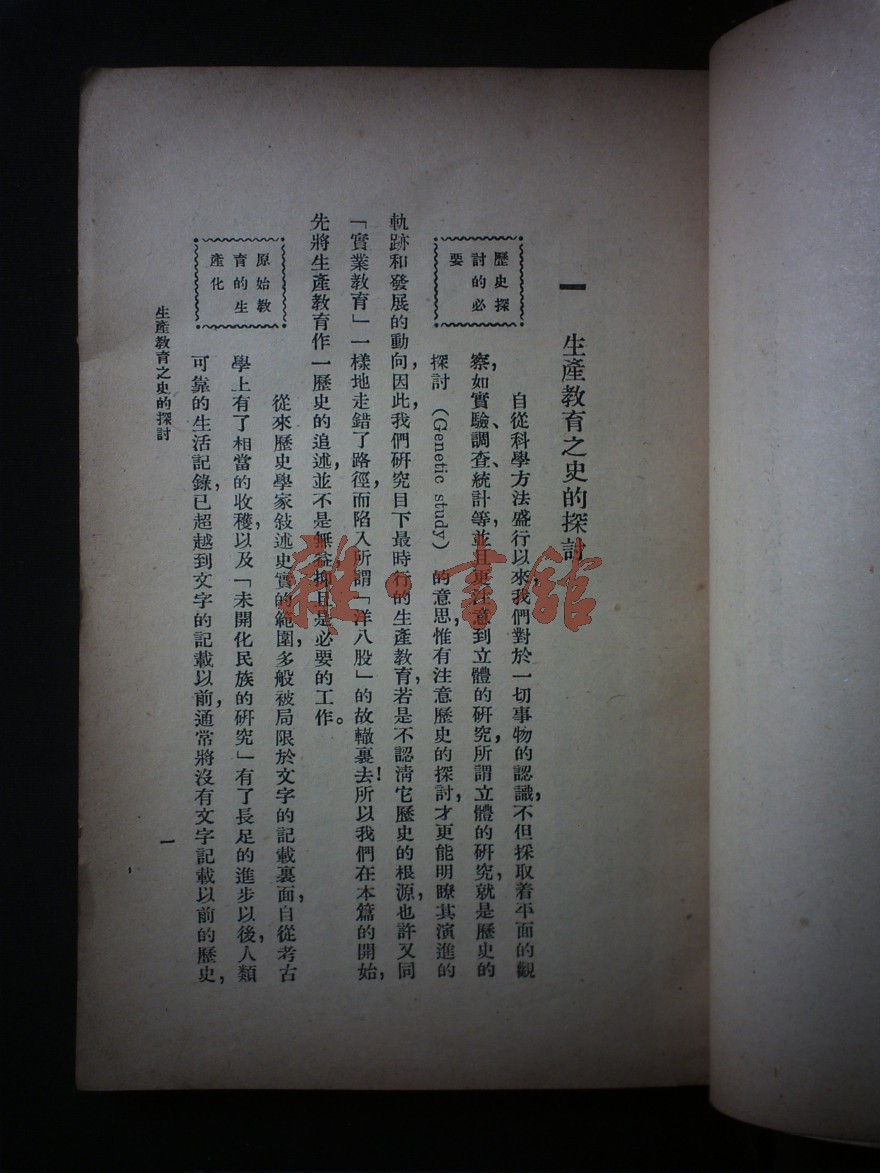 一　生產教育之史的探討
歷史探
討的必
要
自從科學方法盛行以來，我們對於一切事物的認識，不但採取着平面的觀
察，如實驗、調查、統計等，並且更注意到立體的研究，所謂立體的研究，就是歷史的
探討（Genetic study）的意思，惟有注意歷史的探討，才更能明瞭其演進的
軌跡和發展的動向，因此，我們研究目下最時行的生產教育，若是不認清它歷史的根源，也許又同
「實業教育」一樣地走錯了路徑，而陷入所謂「洋八股」的故轍裏去！所以我們在本篇的開始，
先將生產教育作一歷史的追述，並不是無益抑且是必要的工作。
原始教
育的生
產化
從來歷史學家敍述史實的範圍，多般被局限於文字的記載裏面，自從考古
學上有了相當的收穫，以及「未開化民族的研究」有了長足的進步以後，人類
可靠的生活記錄，已超越到文字的記載以前，通常將沒有文字記載以前的歷史，
生產教育之史的探討
一
雜·書館